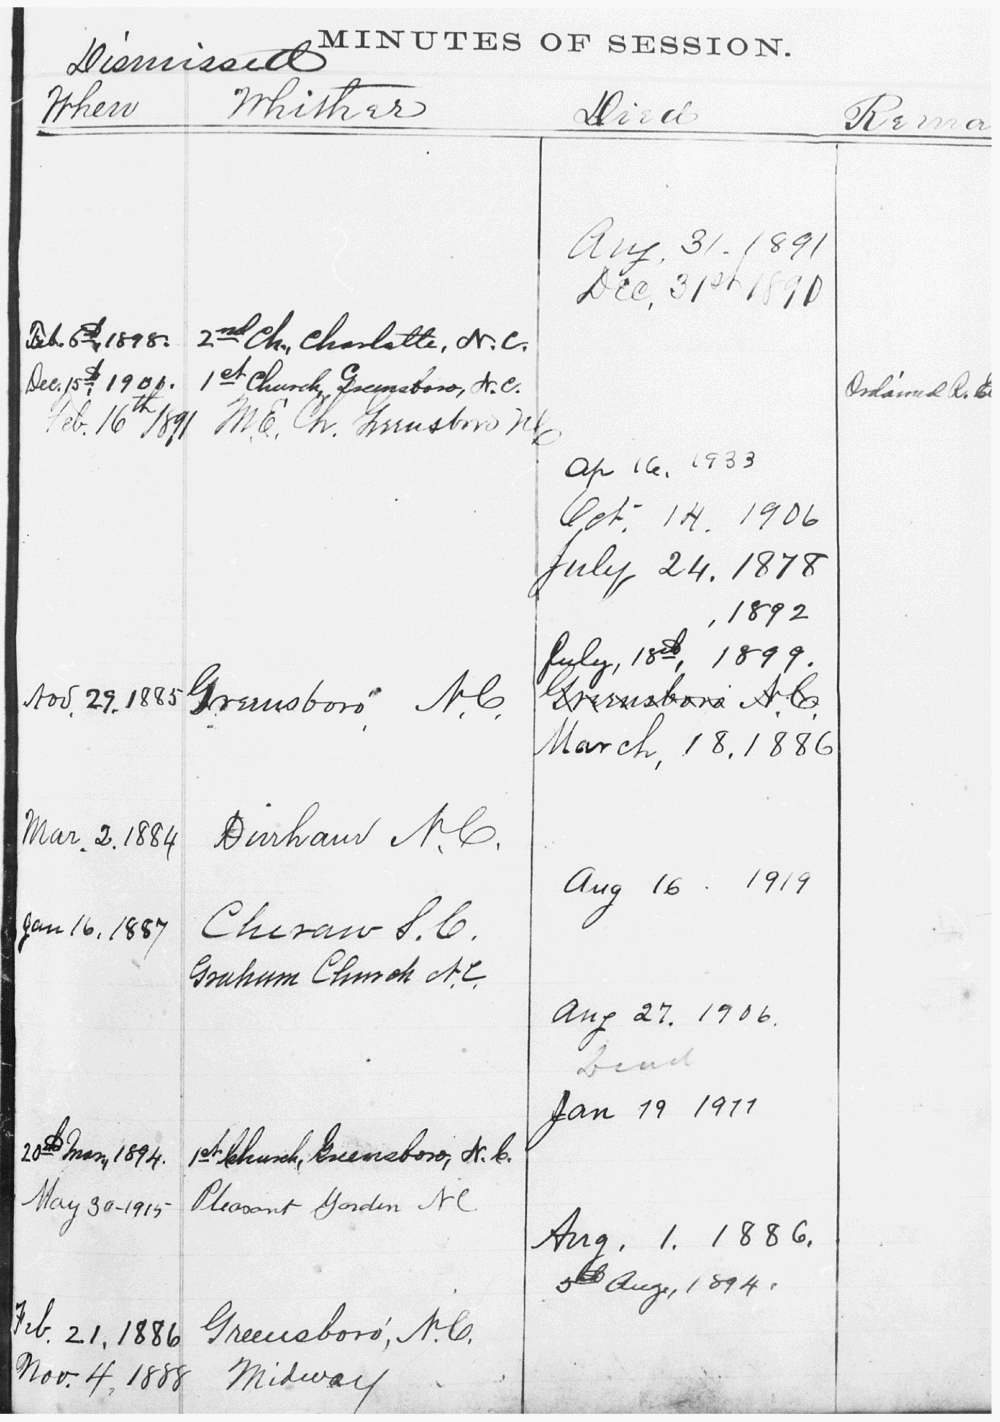 MINUTES OF SESSION.
Dismissed
When Whither Died Rema
Aug. 31. 1891
Dec, 31st 1890
Feb. 6th, 1898. 2nd Ch., Charlotte, N.C.
Dec. 15th, 1901. 1st Church, Greensboro, N.C. Ordained R. E
Feb. 16th 1891 M.E. Ch. Greensboro NC
Ap 16. 1933
Oct. 14. 1906
July 24. 1878
, 1892
July, 18th, 1899.
Nov. 29. 1885 Greensboro, N.C. Greensboro N.C.
March, 18. 1886
Mar. 2. 1884 Durham N.C.
Aug 16. 1919
Jan 16. 1887 Cheraw S.C.
Graham Church N.C.
Aug 27. 1906.
Dead
Jan 19 1911
20th Mar, 1894. 1st Church, Greensboro, N.C.
May 30-1915 Pleasant Garden NC
Aug. 1. 1886.
5th Aug, 1894.
Feb. 21, 1886 Greensboro, N.C.
Nov. 4, 1888 Midway